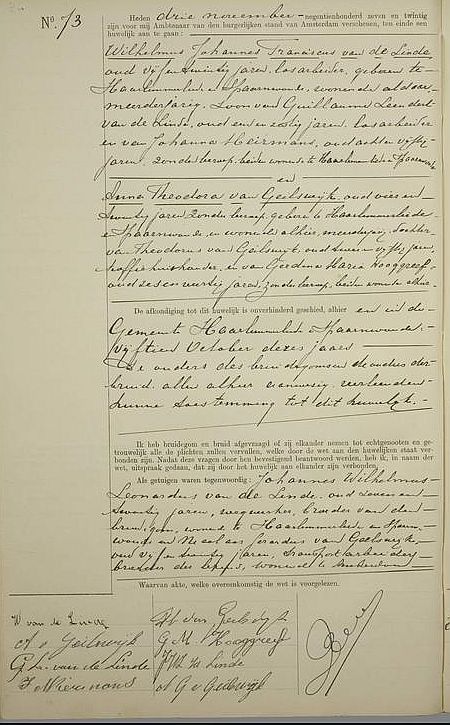 Nº. 73
Heden drie november negentienhonderd zeven en twintig
zijn voor mij Ambtenaar van den burgerlijken stand van Amsterdam verschenen, ten einde een
huwelijk aan te gaan:
Wilhelmus Johannes Franciscus van de Linde
oud vijf en twintig jaren, los arbeider, geboren te
Haarlemmerliede en Spaarnwoude, wonende aldaar,
meerderjarig, zoon van Guillaume Leendert
van de Linde, oud een en zestig jaren, los arbeider
en van Johanna Heirmans, oud acht en vijftig
jaren, zonder beroep, beiden wonende te Haarlemmerliede en Spaarnwoude
en
Anna Theodora van Geilswijk, oud vier en
twintig jaren, zonder beroep, geboren te Haarlemmerliede
en Spaarnwoude, en wonende alhier, meerderjarig, dochter
van Theodorus van Geilswijk, oud twee en vijftig jaren,
koffiehuishouder, en van Gerdina Maria Hooggreef,
oud zes en veertig jaren, zonder beroep, beiden wonende alhier.
De afkondiging tot dit huwelijk is onverhinderd geschied, alhier en in de
Gemeente Haarlemmerliede en Spaarnwoude
vijftien October dezes jaars
De ouders des bruidegoms en de ouders der
bruid, allen alhier aanwezig, verleenden
hunne toestemming tot dit huwelijk.
Ik heb bruidegom en bruid afgevraagd of zij elkander nemen tot echtgenooten en ge-
trouwelijk alle de plichten zullen vervullen, welke door de wet aan den huwelijken staat ver-
bonden zijn. Nadat deze vragen door hen bevestigend beantwoord werden, heb ik, in naam der
wet, uitspraak gedaan, dat zij door het huwelijk aan elkander zijn verbonden.
Als getuigen waren tegenwoordig: Johannes Wilhelmus
Leonardus van de Linde, oud zeven en
twintig jaren, wegwerker, broeder van den
bruidegom, wonende te Haarlemmerliede en Spaarn-
woude en Nicolaas Gerardus van Geilswijk,
oud vijf en twintig jaren, transportarbeider,
broeder der bruid, wonende te Amsterdam
Waarvan akte, welke overeenkomstig de wet is voorgelezen.
W van de Linde
A v Geilswijk
G. L. van de Linde
J Heirmans
G M Hooggreef
N G v Geilswijk